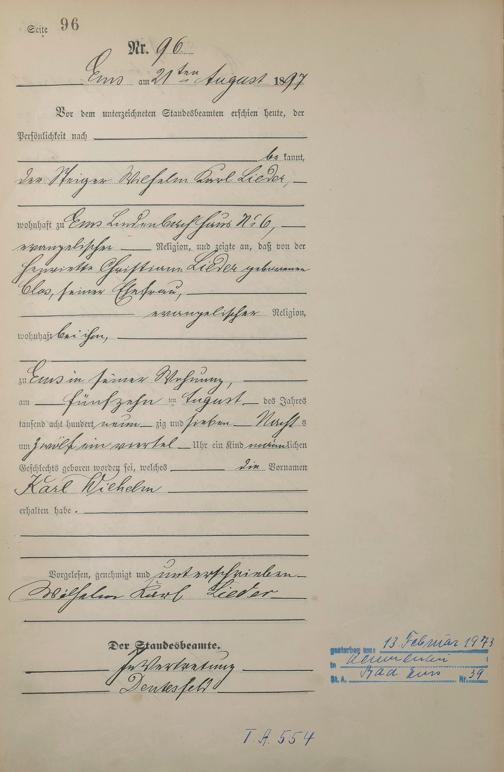 Seite 96
Nr. 96
Ems am 21ten August 1897
Vor dem unterzeichneten Standesbeamten erschien heute, der
Persönlichkeit nach
be kannt,
der Steiger Wilhelm Karl Lieder,
wohnhaft zu Ems Lindenbach Haus No 6,
evangelischer Religion, und zeigte an, daß von der
Henriette Christiane Lieder geborenen
Clos, seiner Ehefrau,
evangelischer Religion,
wohnhaft bei ihm,
zu Ems in seiner Wohnung,
am fünfzehn ten August des Jahres
tausend acht hundert neun zig und sieben Nacht s
um zwölf ein viertel Uhr ein Kind männlichen
Geschlechts geboren worden sei, welches die Vornamen
Karl Wilhelm
erhalten habe.
Vorgelesen, genehmigt und unterschrieben
Wilhelm Karl Lieder
Der Standesbeamte.
In Vertretung
gestorben am: 13 Februar 1973
in
St. A. Bad Ems Nr. 39
T. A. 554